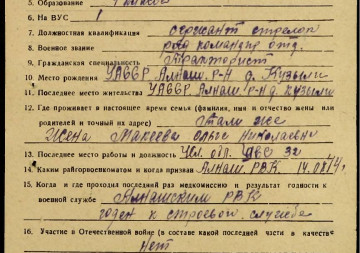 5. Образование
6. На ВУС 1
7. Должностная квалификация сержант стрелок
8. Военное звание командир отд.
9. Гражданская специальность тракторист
10 Место рождения УАССР. Алнаш. Р-Н д. Кузыли
11. Последнее место жительства УАССР. Алнаш. Р-Н д. Кузыли
12. Где проживает в настоящее время семья (фамилия, имя и отчество жены или
родителей и точный их адрес) там же
Жена Макеева Ольга Николаевн
13. Последнее место работы и должность
14. Каким райгорвоенкоматом и когда призван Алнаш. РВК. 14.08.44г.
15. Когда и где проходил последний раз медкомиссию и результат годности к
военной службе Алнашским РВК
годен к строевой службе
16. Участие в Отечественной войне (в составе какой последней части в качестве
нет